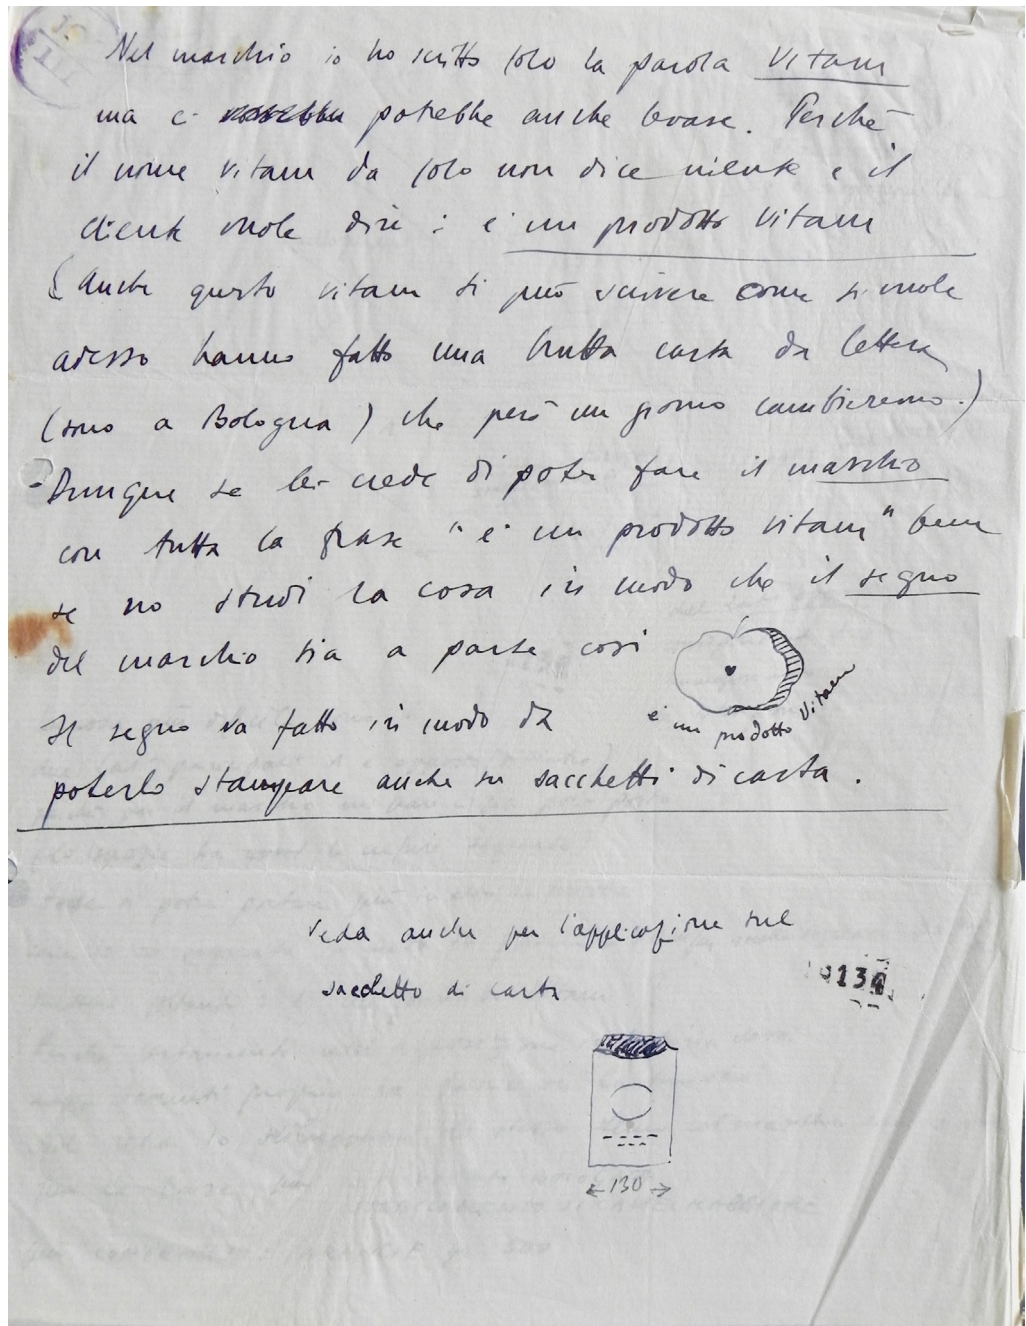 Nel marchio io ho scritto solo la parola Vitam
ma ci potrebbe anche levare. Perché
il nome vitam da solo non dice niente e il
cliente vuole dire: è un prodotto Vitam
(Anche questo vitam si può scrivere come si vuole
adesso hanno fatto una brutta carta da lettera
(sono a Bologna) che però un giorno cambieremo.)
Dunque se lei crede di poter fare il marchio
con tutta la frase "è un prodotto vitam" bene
se no studi la cosa in modo che il segno
del marchio sia a parte così
è un prodotto Vitam
Il segno va fatto in modo da
poterlo stampare anche su sacchetti di carta.
Veda anche per l'applicazione sul
sacchetto di carta
130